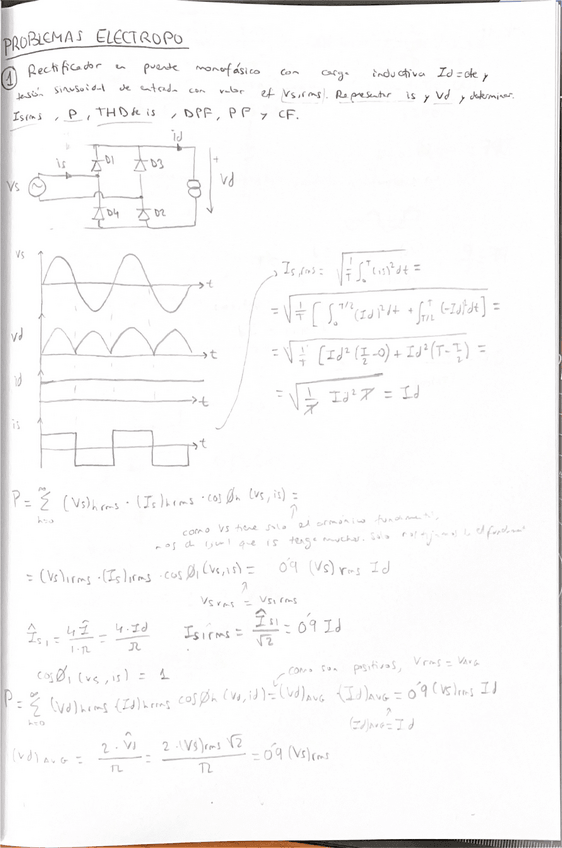 PROBLEMAS ELECTROPO
① Rectificador en puente monofásico con carga inductiva Id=cte y
tensión sinusoidal de entrada con valor ef (Vs,rms). Representar is y Vd y determinar
Isrms, P, THD de is, DPF, PF y CF.
id
is D1 D3
Vs + Vd
D4 D2
Vs
t
Vd
t
id
t
is
t
Is,rms = √(1/T ∫₀ᵀ (is)² dt) =
= √(1/T [∫₀^(T/2) (Id)² dt + ∫_(T/2)^T (-Id)² dt]) =
= √(1/T [Id² (T/2 - 0) + Id² (T - T/2)]) =
= √(1/T Id² T) = Id
P = Σ_(h=0)^∞ (Vs)hrms · (Is)hrms · cos Øh (vs, is) =
como Vs tiene solo el armónico
nos da igual que is tenga muchos. Solo
= (Vs)1rms · (Is)1rms · cos Ø1 (vs, is) = 0'9 (Vs) rms Id
Vs rms = Vs1rms
Îs1 = 4Î/(1·π) = 4·Id/π Is1rms = Îs1/√2 = 0'9 Id
cos Ø1 (vs, is) = 1
como son positivos, Vrms = VAVG
P = Σ_(h=0)^∞ (Vd)hrms (Id)hrms cos Øh (vd, id) = (Vd)AVG (Id)AVG = 0'9 (Vs)rms Id
(Id)AVG = Id
(Vd)AVG = 2·V̂s/π = 2·(Vs)rms √2/π = 0'9 (Vs)rms